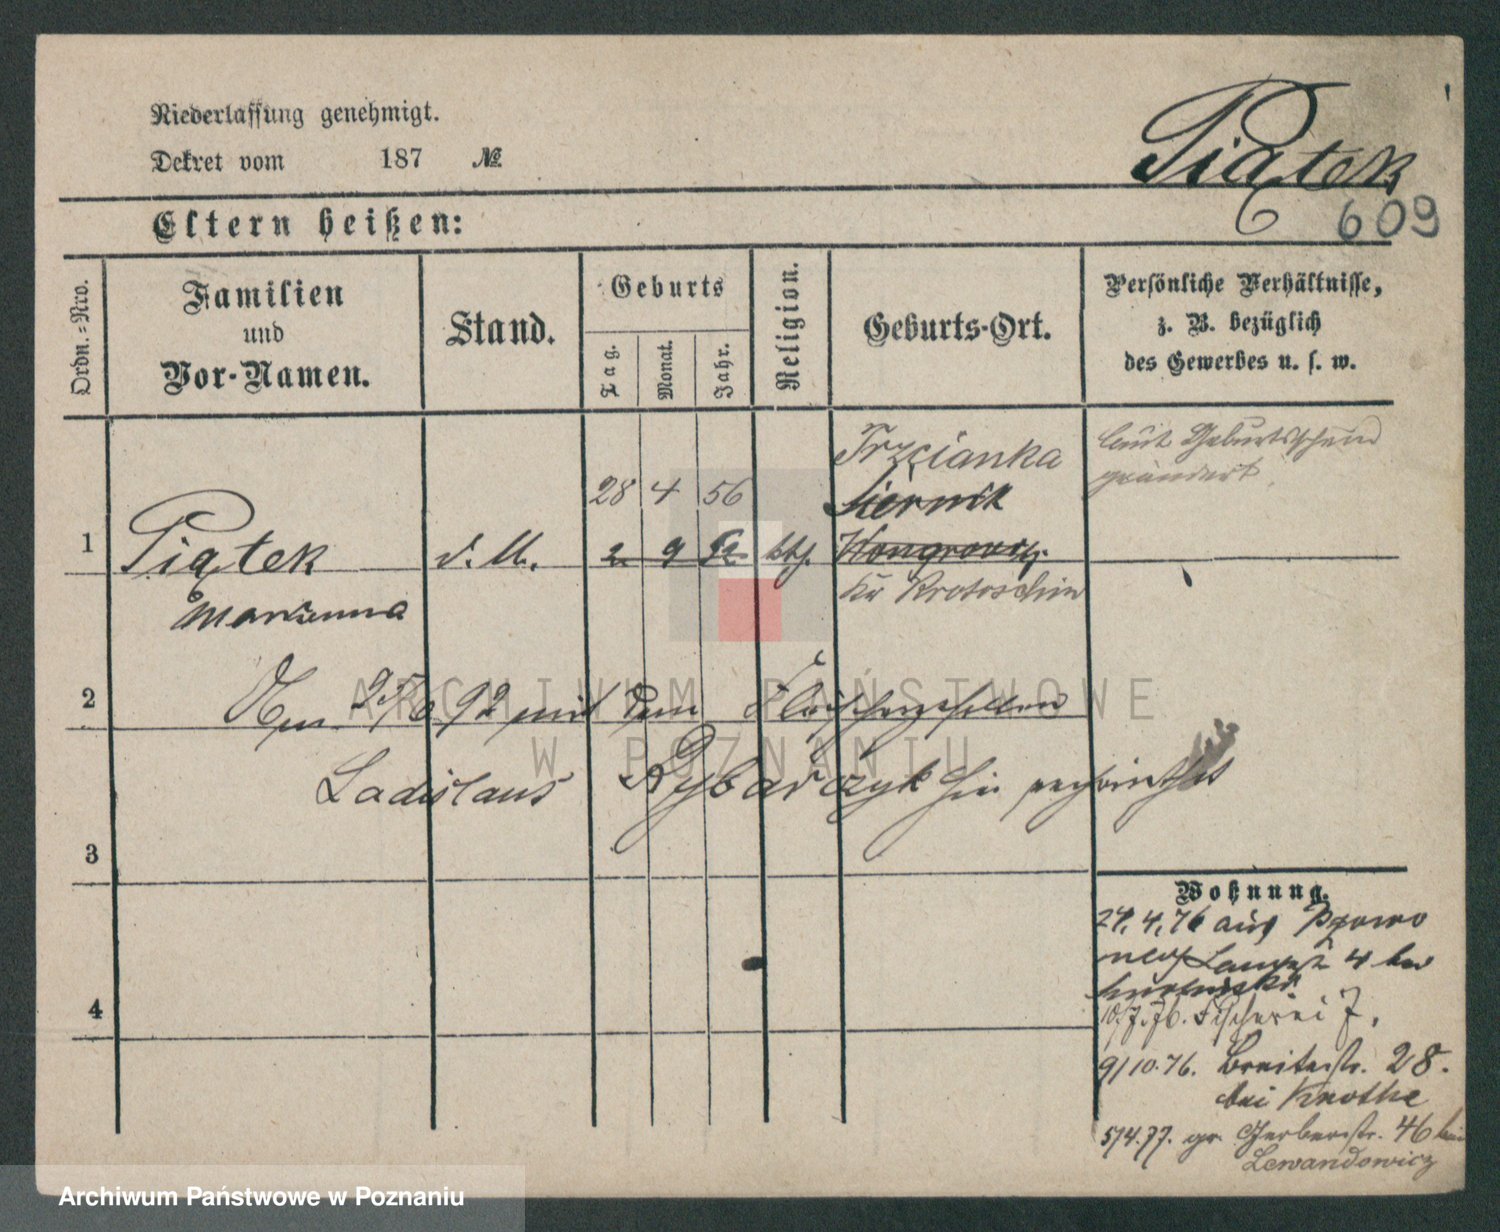 Niederlassung genehmigt.
Dekret vom 187 №
Piątek
609
Eltern heißen:
Ordn.-Nro.
Familien
und
Vor-Namen.
Stand.
Geburts
Tag.
Monat.
Jahr.
Religion.
Geburts-Ort.
Persönliche Verhältnisse,
z. B. bezüglich
des Gewerbes u. s. w.
Trzcianka
laut Geburtsschein
geändert.
28 4 56
Siernik
1 Piątek d. M. 2 9 52 kth. Wongrowitz
Kr Krotoschin
Marianna
2 Am 25/6 92 mit dem Fleischergesellen
Ladislaus Rybarczyk hier verheirathet
3
Wohnung.
24.4.76 aus
4 bei
10/7.76. Fischerei 7.
4
9/10.76. Breitestr. 28.
bei Knothe
5/4.77. gr. Gerberstr. 46 bei
Lewandowicz
ARCHIWUM PAŃSTWOWE
W POZNANIU
Archiwum Państwowe w Poznaniu